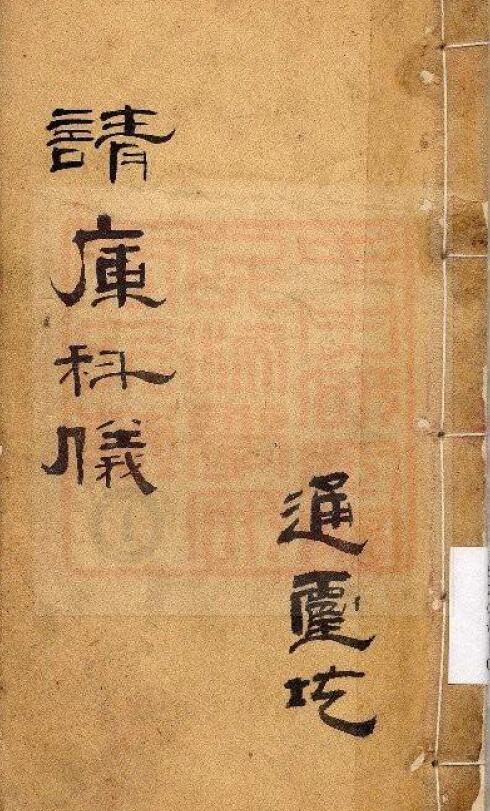 請庫科儀
通靈坛